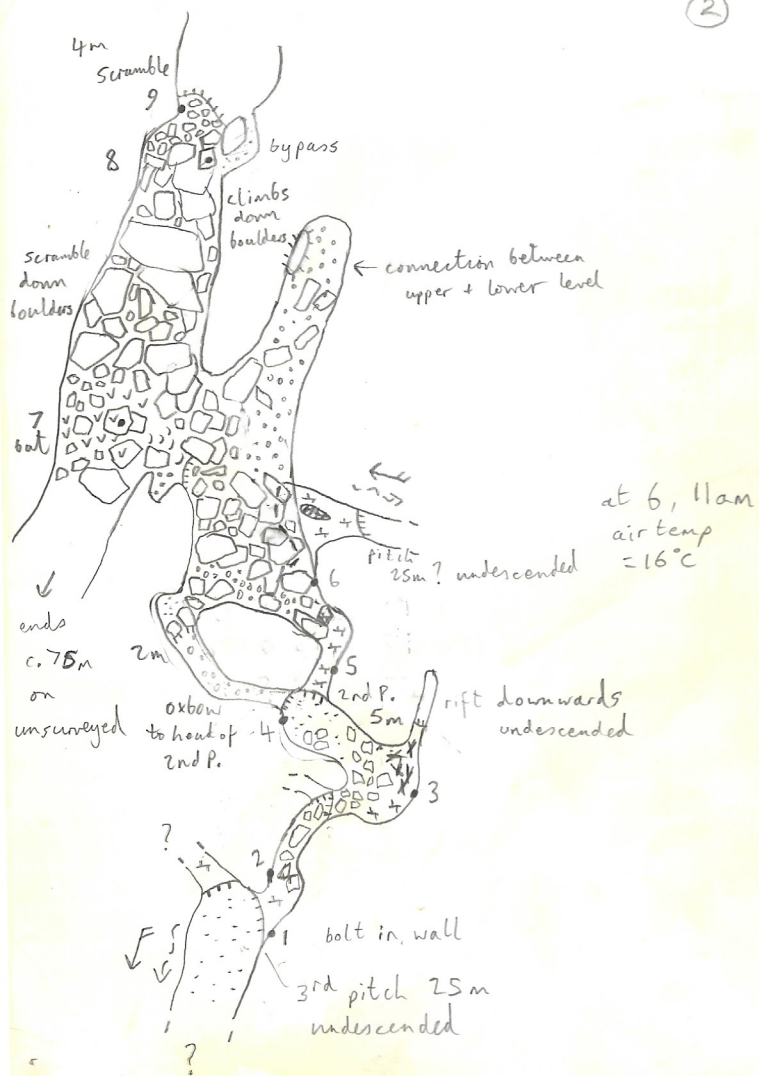 2
4m
scramble
9
8
bypass
climbs
down
boulders
scramble
down
boulders
← connection between
upper + lower level
7
bat
at 6, 11am
air temp
= 16°C
pitch
25m? undescended
6
ends
c. 75m
on
unsurveyed
2m
5
2nd P.
5m
rift downwards
undescended
oxbow
to head of
2nd P.
4
3
?
2
1
bolt in wall
3rd pitch 25m
undescended
?